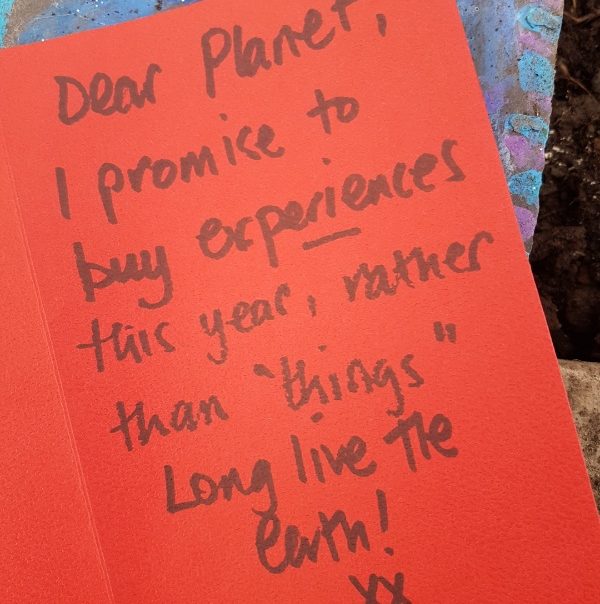 Dear Planet,
I promise to
buy experiences
this year, rather
than "things"
Long live the
earth!
xx